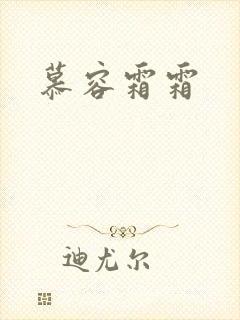 慕容霜霜
迪尤尔